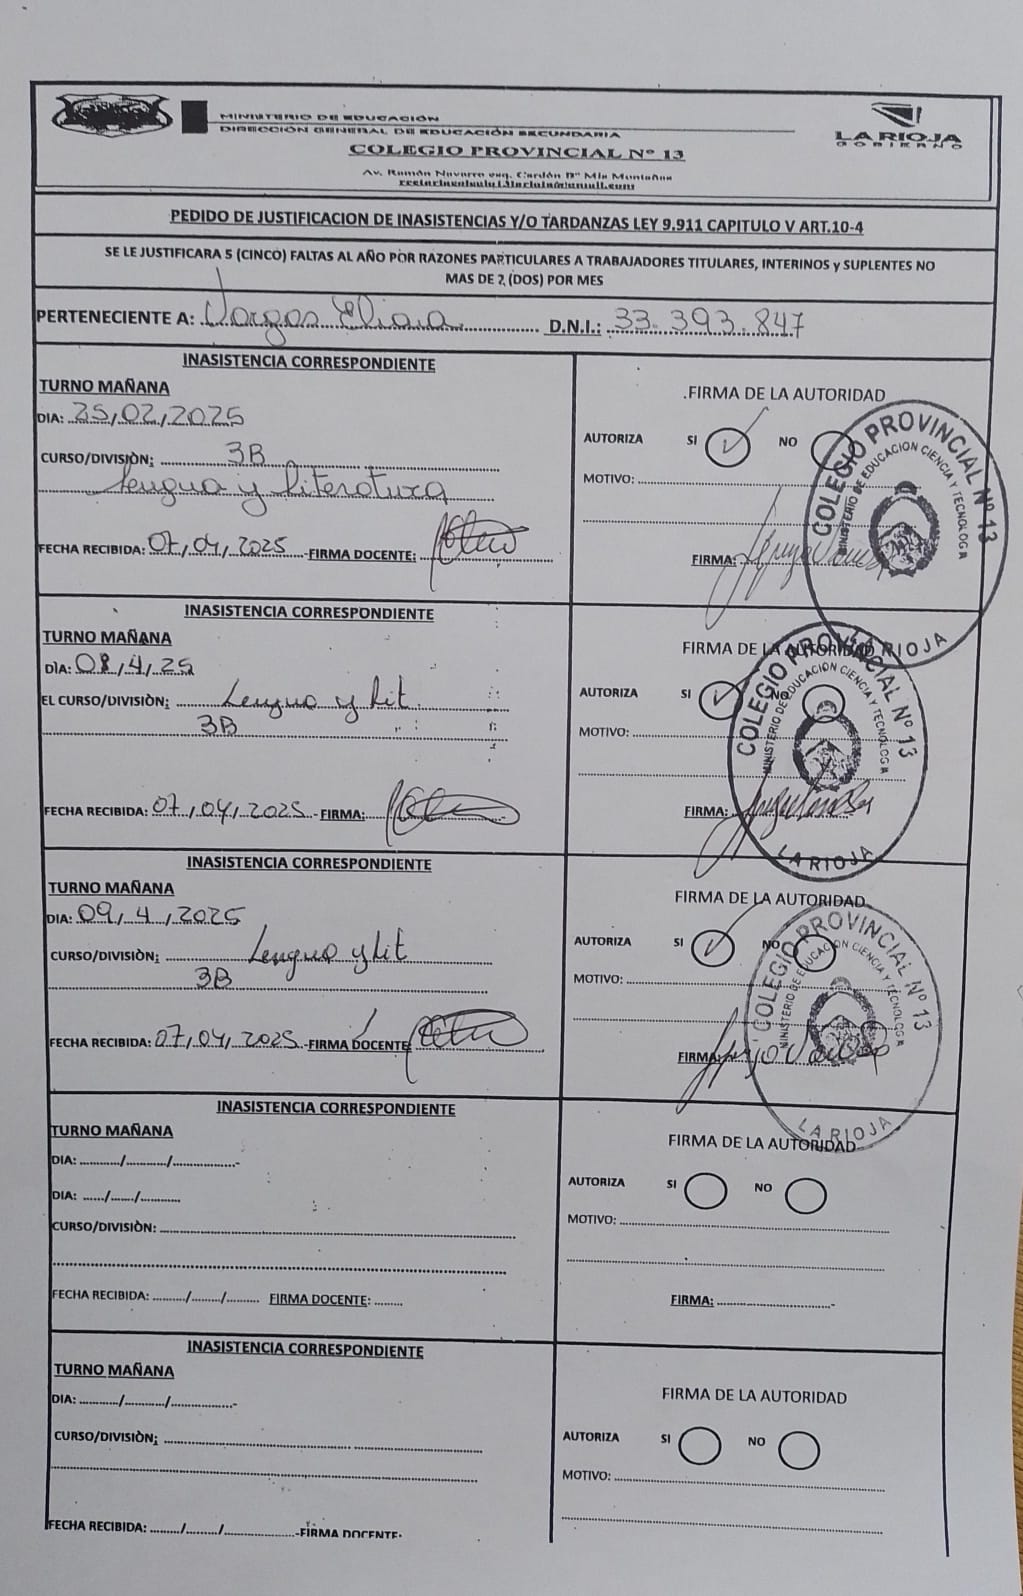 MINISTERIO DE EDUCACIÓN
DIRECCIÓN GENERAL DE EDUCACIÓN SECUNDARIA
COLEGIO PROVINCIAL Nº 13
Av. Ramón Navarro esq. Cardón Bº Mis Montañas
LA RIOJA
GOBIERNO
PEDIDO DE JUSTIFICACION DE INASISTENCIAS Y/O TARDANZAS LEY 9.911 CAPITULO V ART.10-4
SE LE JUSTIFICARA 5 (CINCO) FALTAS AL AÑO POR RAZONES PARTICULARES A TRABAJADORES TITULARES, INTERINOS y SUPLENTES NO
MAS DE 2 (DOS) POR MES
PERTENECIENTE A: Vargas Eliana D.N.I.: 33.393.847
INASISTENCIA CORRESPONDIENTE
TURNO MAÑANA
DIA: 25/02/2025
CURSO/DIVISIÒN: 3B
Lengua y Literatura
FECHA RECIBIDA: 07/04/2025 -FIRMA DOCENTE:
.FIRMA DE LA AUTORIDAD
AUTORIZA SI NO
MOTIVO:
FIRMA:
COLEGIO PROVINCIAL Nº 13
MINISTERIO DE EDUCACION CIENCIA Y TECNOLOGIA
LA RIOJA
INASISTENCIA CORRESPONDIENTE
TURNO MAÑANA
DÌA: 08/4/25
EL CURSO/DIVISIÒN: Lengua y Lit.
3B
FECHA RECIBIDA: 07/04/2025 - FIRMA:
FIRMA DE LA AUTORIDAD
AUTORIZA SI NO
MOTIVO:
FIRMA:
COLEGIO PROVINCIAL Nº 13
MINISTERIO DE EDUCACION CIENCIA Y TECNOLOGIA
LA RIOJA
INASISTENCIA CORRESPONDIENTE
TURNO MAÑANA
DIA: 09/4/2025
CURSO/DIVISIÒN: Lengua y Lit
3B
FECHA RECIBIDA: 07/04/2025 -FIRMA DOCENTE
FIRMA DE LA AUTORIDAD
AUTORIZA SI NO
MOTIVO:
FIRMA:
COLEGIO PROVINCIAL Nº 13
MINISTERIO DE EDUCACION CIENCIA Y TECNOLOGIA
LA RIOJA
INASISTENCIA CORRESPONDIENTE
TURNO MAÑANA
DIA: ........../........../................-
DIA: ....../....../..........
CURSO/DIVISIÒN:
FECHA RECIBIDA: ......../......./......... FIRMA DOCENTE: ........
FIRMA DE LA AUTORIDAD
AUTORIZA SI NO
MOTIVO:
FIRMA:
INASISTENCIA CORRESPONDIENTE
TURNO MAÑANA
DIA: ........../........../................-
CURSO/DIVISIÒN:
FECHA RECIBIDA: ......../......../.................-FIRMA DOCENTE:
FIRMA DE LA AUTORIDAD
AUTORIZA SI NO
MOTIVO: